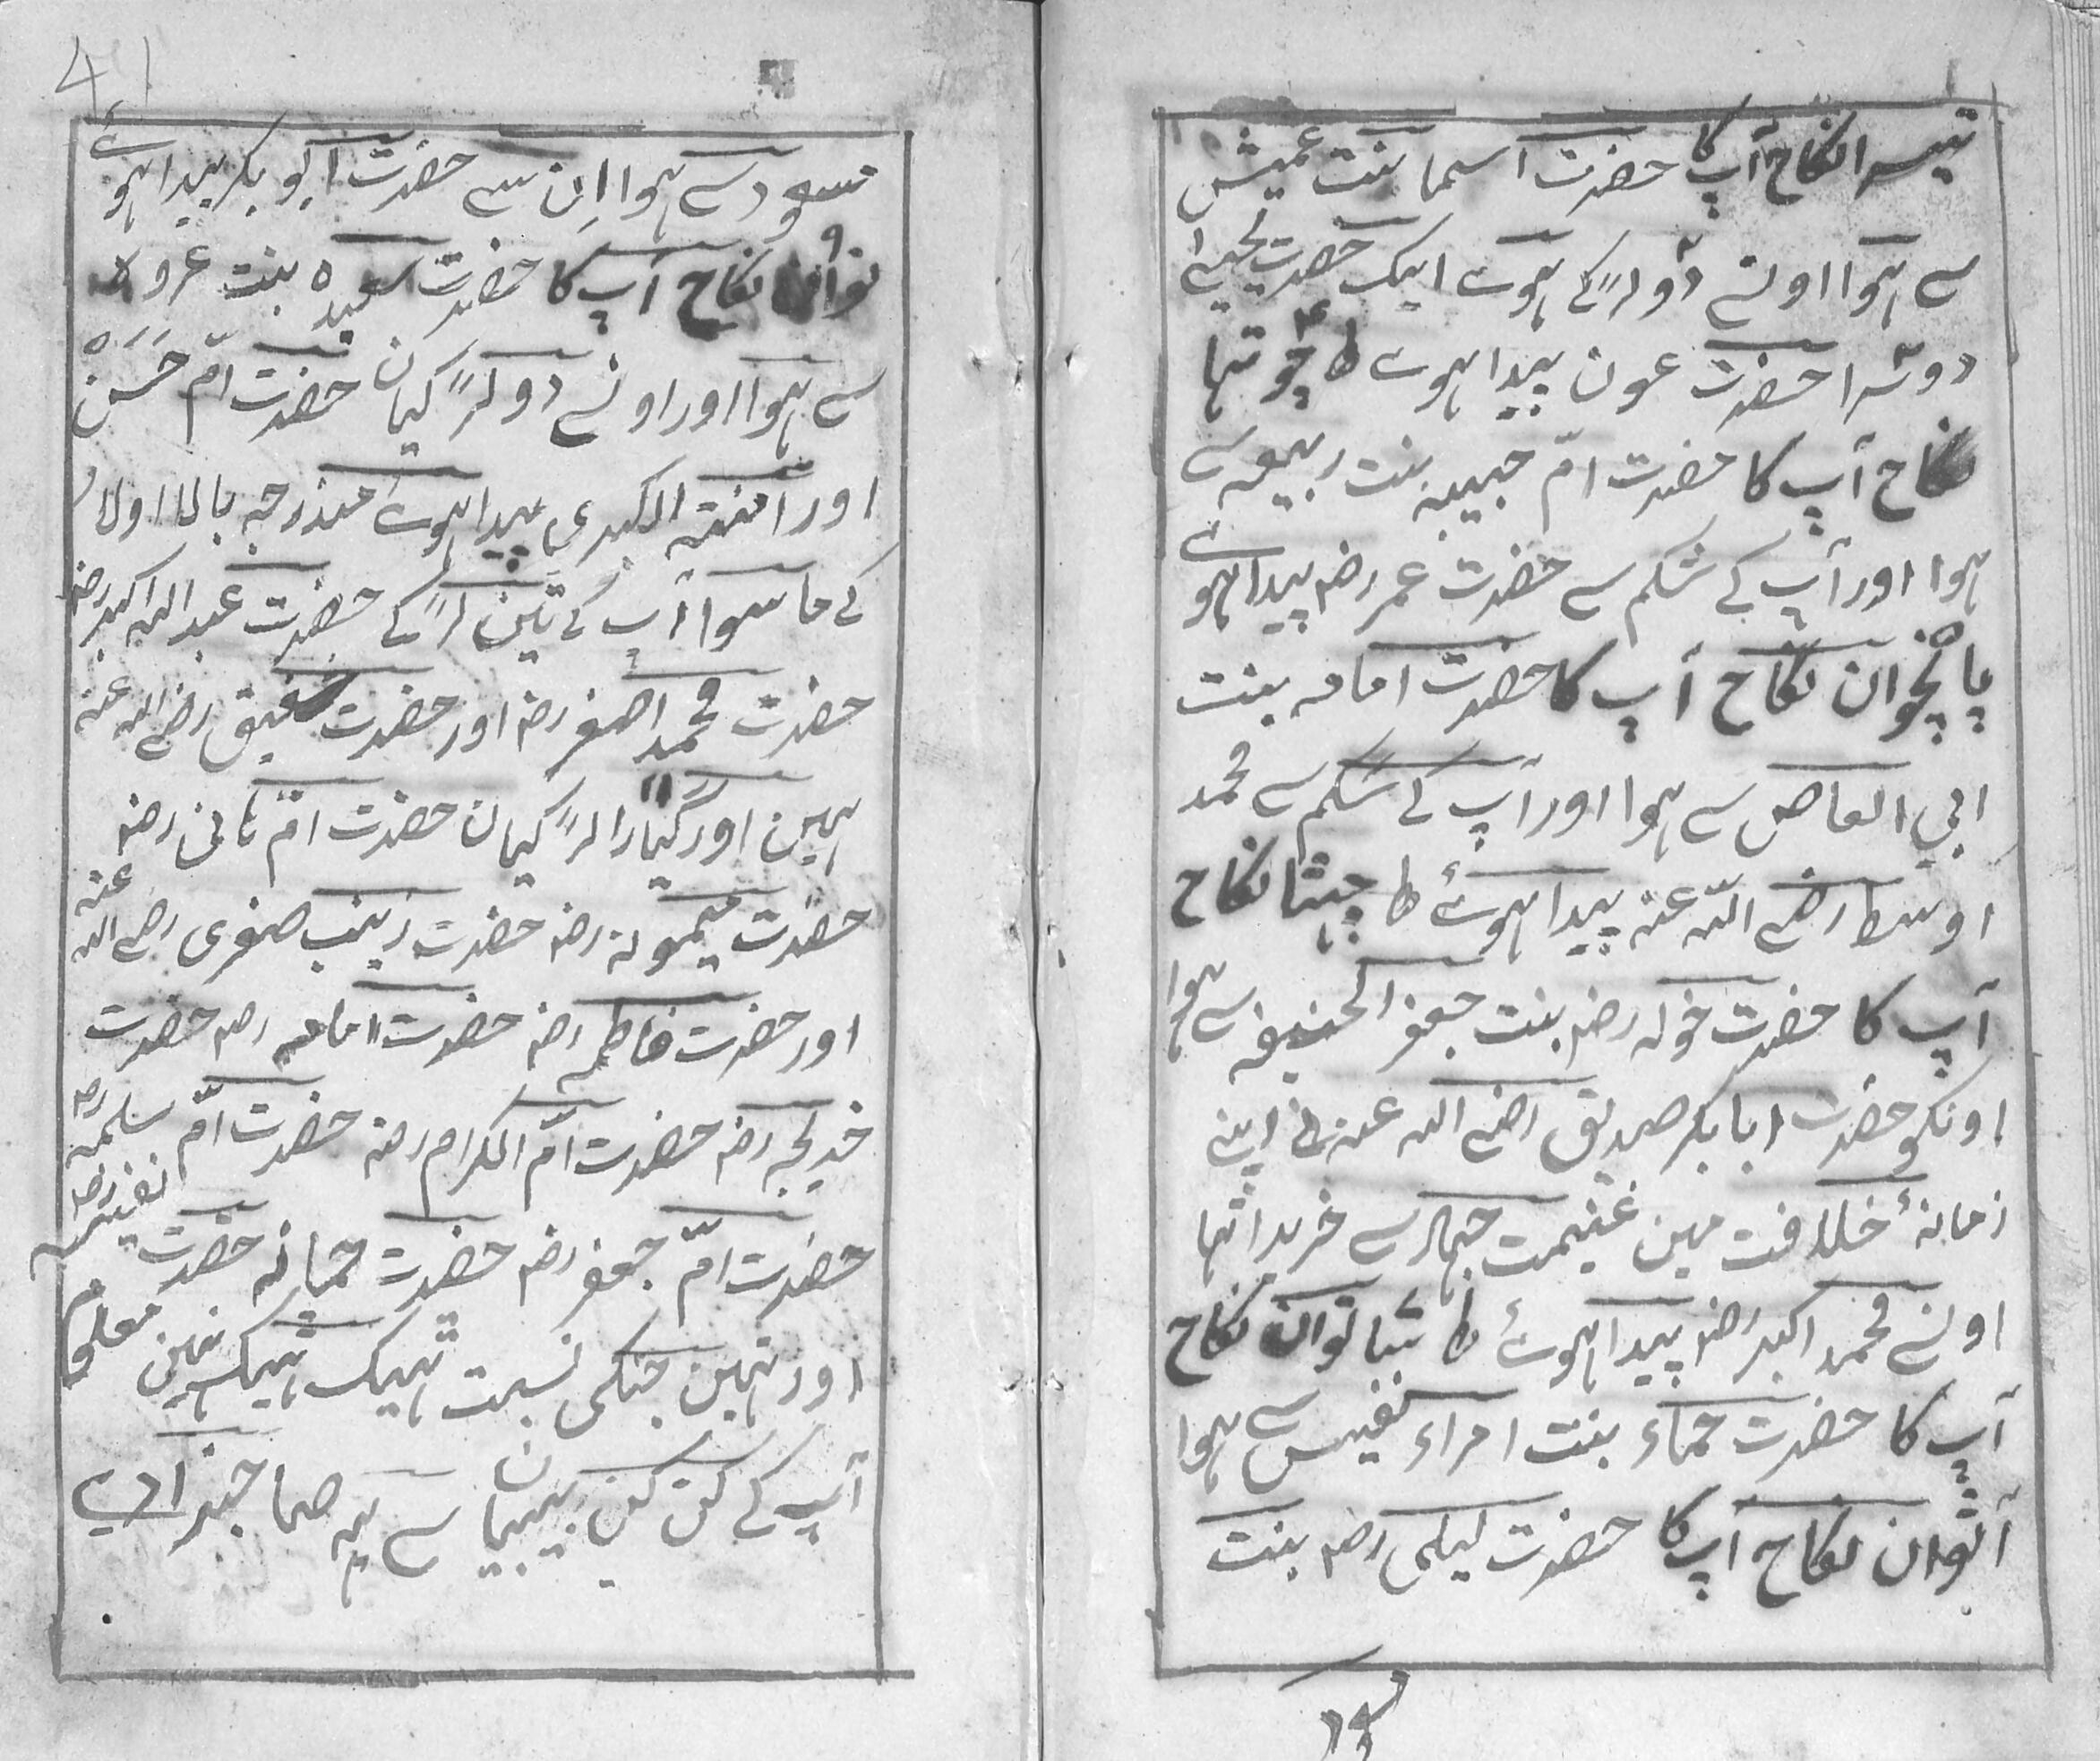 تیسرا نکاح آپ کا حضرت اسما بنت عمیش
سے ہوا اونسے دو لڑکے ہوے ایک حضرت یحیےٰ
دوسرا حضرت عون پیدا ہوے ط چوتہا
نکاح آپ کا حضرت امّ حبیبہ بنت ربیعہ سے
ہوا اور آپ کے شکم سے حضرت عمر رضہ پیدا ہوے
پانچواں نکاح آپ کا حضرت امامہ بنت
ابی العاص سے ہوا اور آپ کے شکم سے محمد
اوسط رضے اللّہ عنہ پیدا ہوئے ط چہٹا نکاح
آپ کا حضرت خولہ رضہ بنت جعفر الحنیفہ سے ہوا
اونکو حضرت ابا بکر صدیق رضے اللہ عنہ نے اپنے
زمانۂ خلافت مین غنیمت جہاد سے خریدا تہا
اونسے محمد اکبر رضہ پیدا ہوئے ط ساتوان نکاح
آپ کا حضرت حماء بنت امراء نفیس سے ہوا
آٹہوان نکاح آپ کا حضرت لیلی رضہ بنت
41
مسعود سے ہوا اِن سے حضرت ابو بکر پیدا ہوئے
نوان نکاح آپ کا حضرت سعیدہ بنت عروہ
سے ہوا اور اونسے دو لڑکیان حضرت امّ حَسَنَہ
اور امنتہ الکبری پیدا ہوے مندرجہ بالا اولاد
کے ماسوا آپ کے تین لڑکے حضرت عبد اللہ اکبر رضہ
حضرت محمد اصغر رضہ اور حضرت شفیق رضے اللہ عنہ
ہین اور گیارا لڑکیان حضرت امّ ہانی رضہ
حضرت میمونہ رضہ حضرت زینب صغری رضے اللہ عنہ
اور حضرت فاطمہ رضہ حضرت امامہ رضہ حضرت
خدیجہ رضہ حضرت امّ الکرام رضہ حضرت امّ سلمہ رضہ
حضرت امّ جعفر رضہ حضرت جمانہ حضرت نفیسہ رضہ
اور تہین جنکی نسبت ٹہیک ٹہیک نہین معلوم
آپ کے کن کن بیبیان سے یہ صاحبزادی